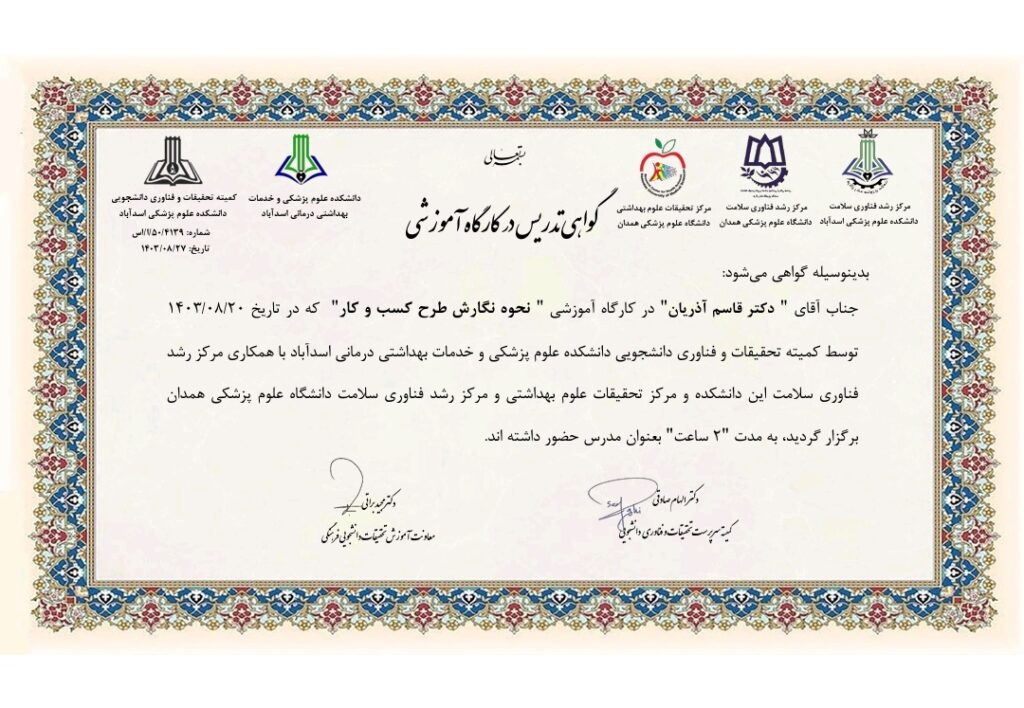 بسمه‌تعالی
مرکز رشد فناوری سلامت
دانشکده علوم پزشکی اسدآباد
مرکز رشد فناوری سلامت
دانشگاه علوم پزشکی همدان
مرکز تحقیقات علوم بهداشتی
دانشگاه علوم پزشکی همدان
گواهی تدریس در کارگاه آموزشی
دانشکده علوم پزشکی و خدمات
بهداشتی درمانی اسدآباد
کمیته تحقیقات و فناوری دانشجویی
دانشکده علوم پزشکی اسدآباد
شماره: ۵۰/۴۱۳۹/ا/اس
تاریخ: ۱۴۰۳/۰۸/۲۷
بدینوسیله گواهی می‌شود:
جناب آقای " دکتر قاسم آذریان" در کارگاه آموزشی " نحوه نگارش طرح کسب و کار" که در تاریخ ۱۴۰۳/۰۸/۲۰
توسط کمیته تحقیقات و فناوری دانشجویی دانشکده علوم پزشکی و خدمات بهداشتی درمانی اسدآباد با همکاری مرکز رشد
فناوری سلامت این دانشکده و مرکز تحقیقات علوم بهداشتی و مرکز رشد فناوری سلامت دانشگاه علوم پزشکی همدان
برگزار گردید، به مدت "۲ ساعت" بعنوان مدرس حضور داشته اند.
دکتر الهام صادقی
کمیته سرپرست تحقیقات و فناوری دانشجویی
دکتر مجید براتی
معاونت آموزش تحقیقات دانشجویی فرهنگی